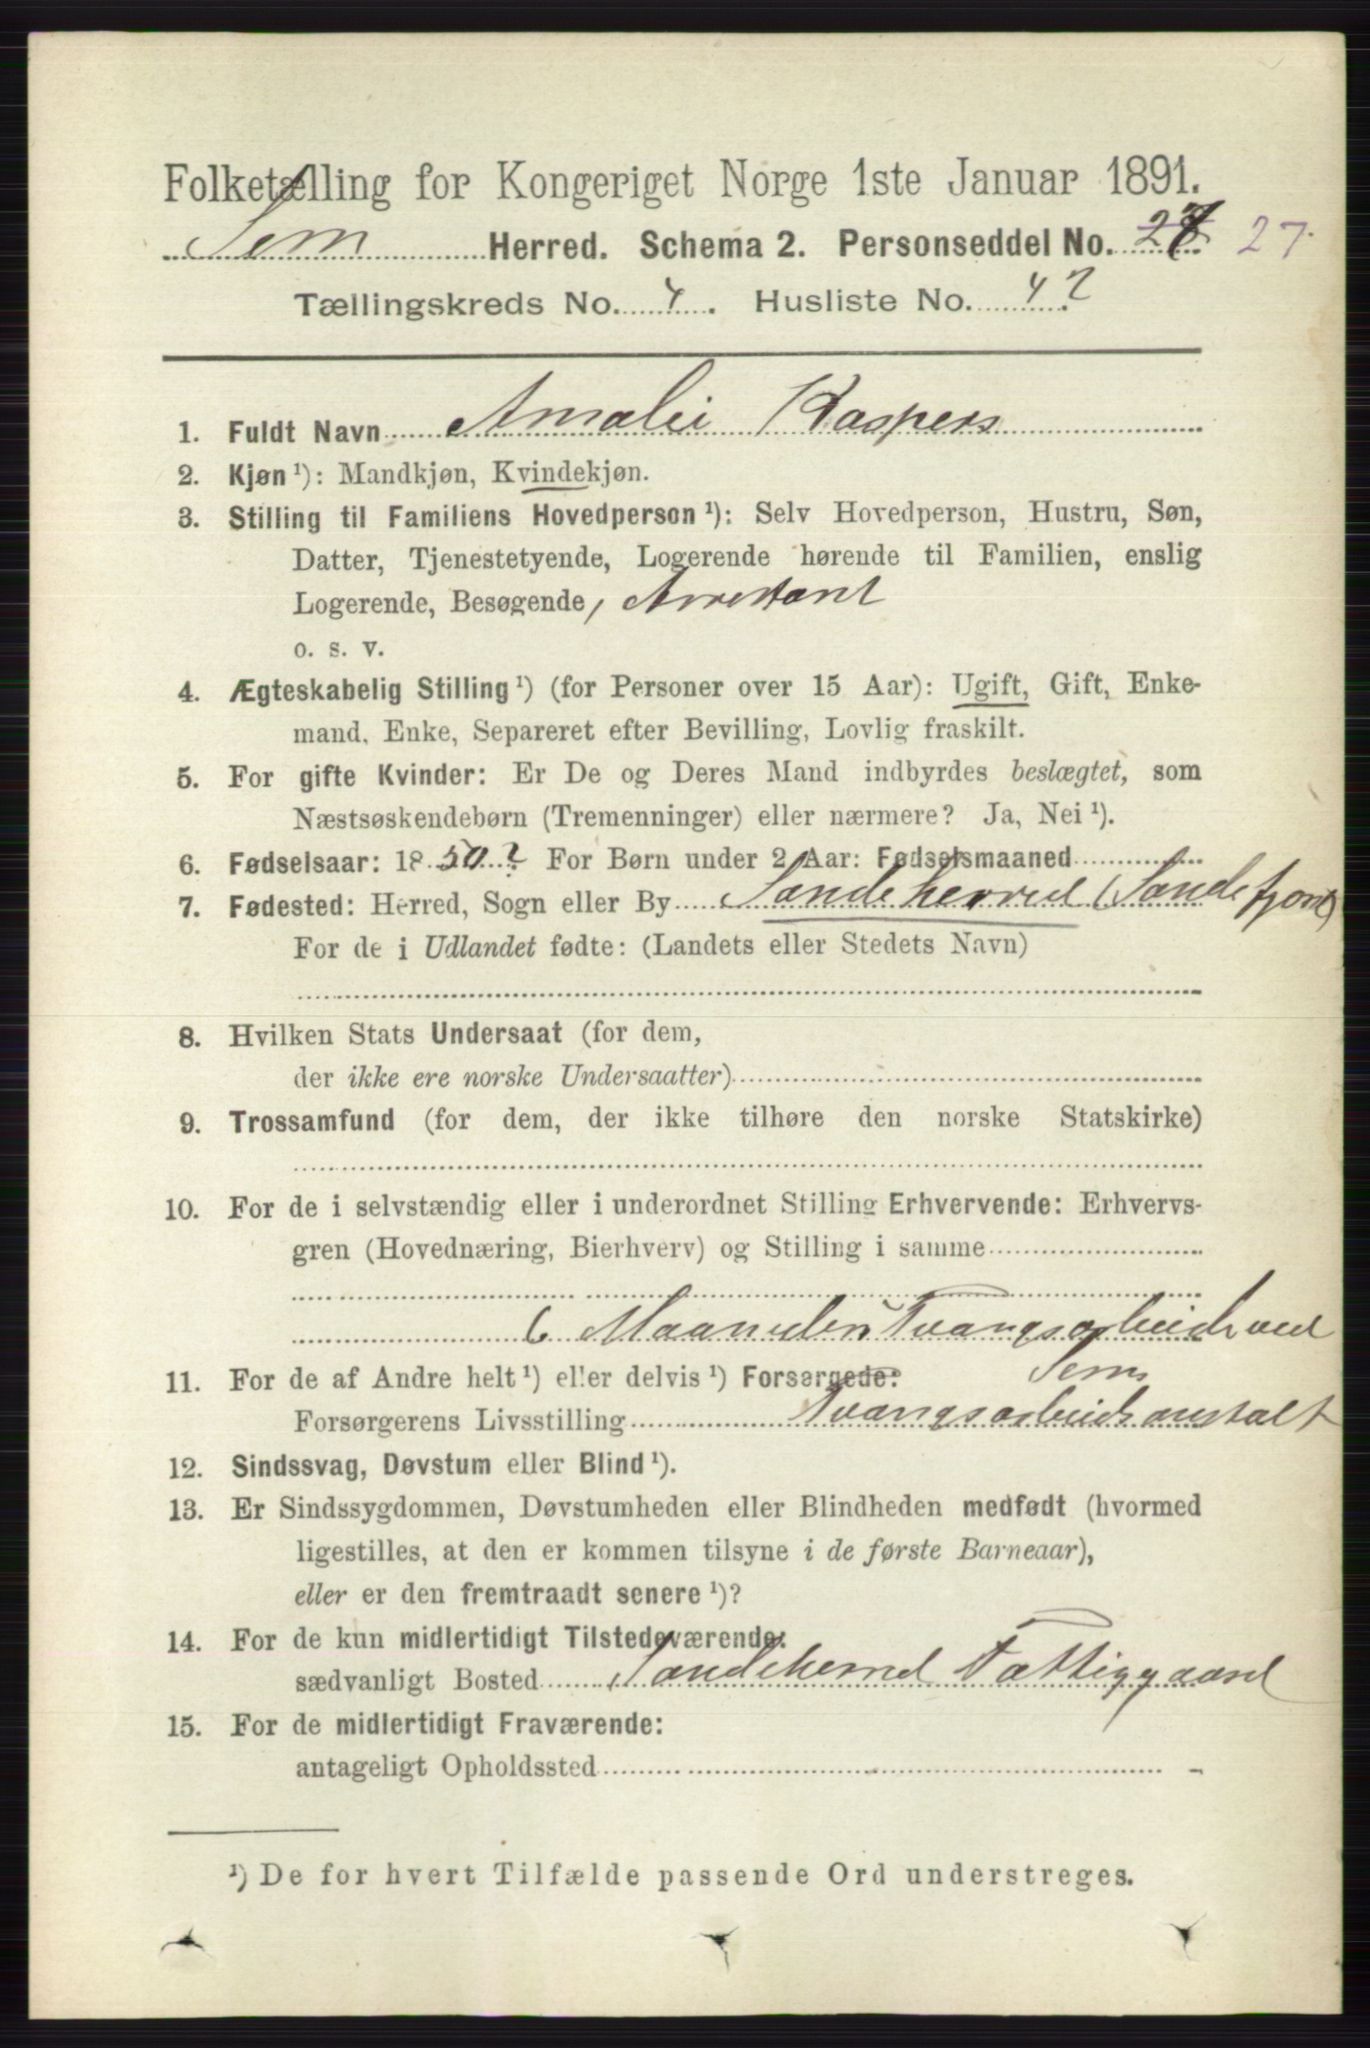 Folketælling for Kongeriget Norge 1ste Januar 1891.
Sem Herred. Schema 2. Personseddel No. 27 27.
Tællingskreds No. 4. Husliste No. 42
1. Fuldt Navn Amalie Kaspers
2. Kjøn ¹): Mandkjøn, Kvindekjøn.
3. Stilling til Familiens Hovedperson ¹): Selv Hovedperson, Hustru, Søn,
Datter, Tjenestetyende, Logerende hørende til Familien, enslig
Logerende, Besøgende, Arrestant
o. s. v.
4. Ægteskabelig Stilling ¹) (for Personer over 15 Aar): Ugift, Gift, Enke-
mand, Enke, Separeret efter Bevilling, Lovlig fraskilt.
5. For gifte Kvinder: Er De og Deres Mand indbyrdes beslægtet, som
Næstsøskendebørn (Tremenninger) eller nærmere? Ja, Nei ¹).
6. Fødselsaar: 1850? For Børn under 2 Aar: Fødselsmaaned
7. Fødested: Herred, Sogn eller By Sandeherred (Sandefjord)
For de i Udlandet fødte: (Landets eller Stedets Navn)
8. Hvilken Stats Undersaat (for dem,
der ikke ere norske Undersaatter)
9. Trossamfund (for dem, der ikke tilhøre den norske Statskirke)
10. For de i selvstændig eller i underordnet Stilling Erhvervende: Erhvervs-
gren (Hovednæring, Bierhverv) og Stilling i samme
6 Maaneders Tvangsarbeide ved
11. For de af Andre helt ¹) eller delvis ¹) Forsørgede: Sems
Forsørgerens Livsstilling Tvangsarbeidsanstalt
12. Sindssvag, Døvstum eller Blind ¹).
13. Er Sindssygdommen, Døvstumheden eller Blindheden medfødt (hvormed
ligestilles, at den er kommen tilsyne i de første Barneaar),
eller er den fremtraadt senere ¹)?
14. For de kun midlertidigt Tilstedeværende:
sædvanligt Bosted Sandeherred Fattiggaard
15. For de midlertidigt Fraværende:
antageligt Opholdssted
¹) De for hvert Tilfælde passende Ord understreges.